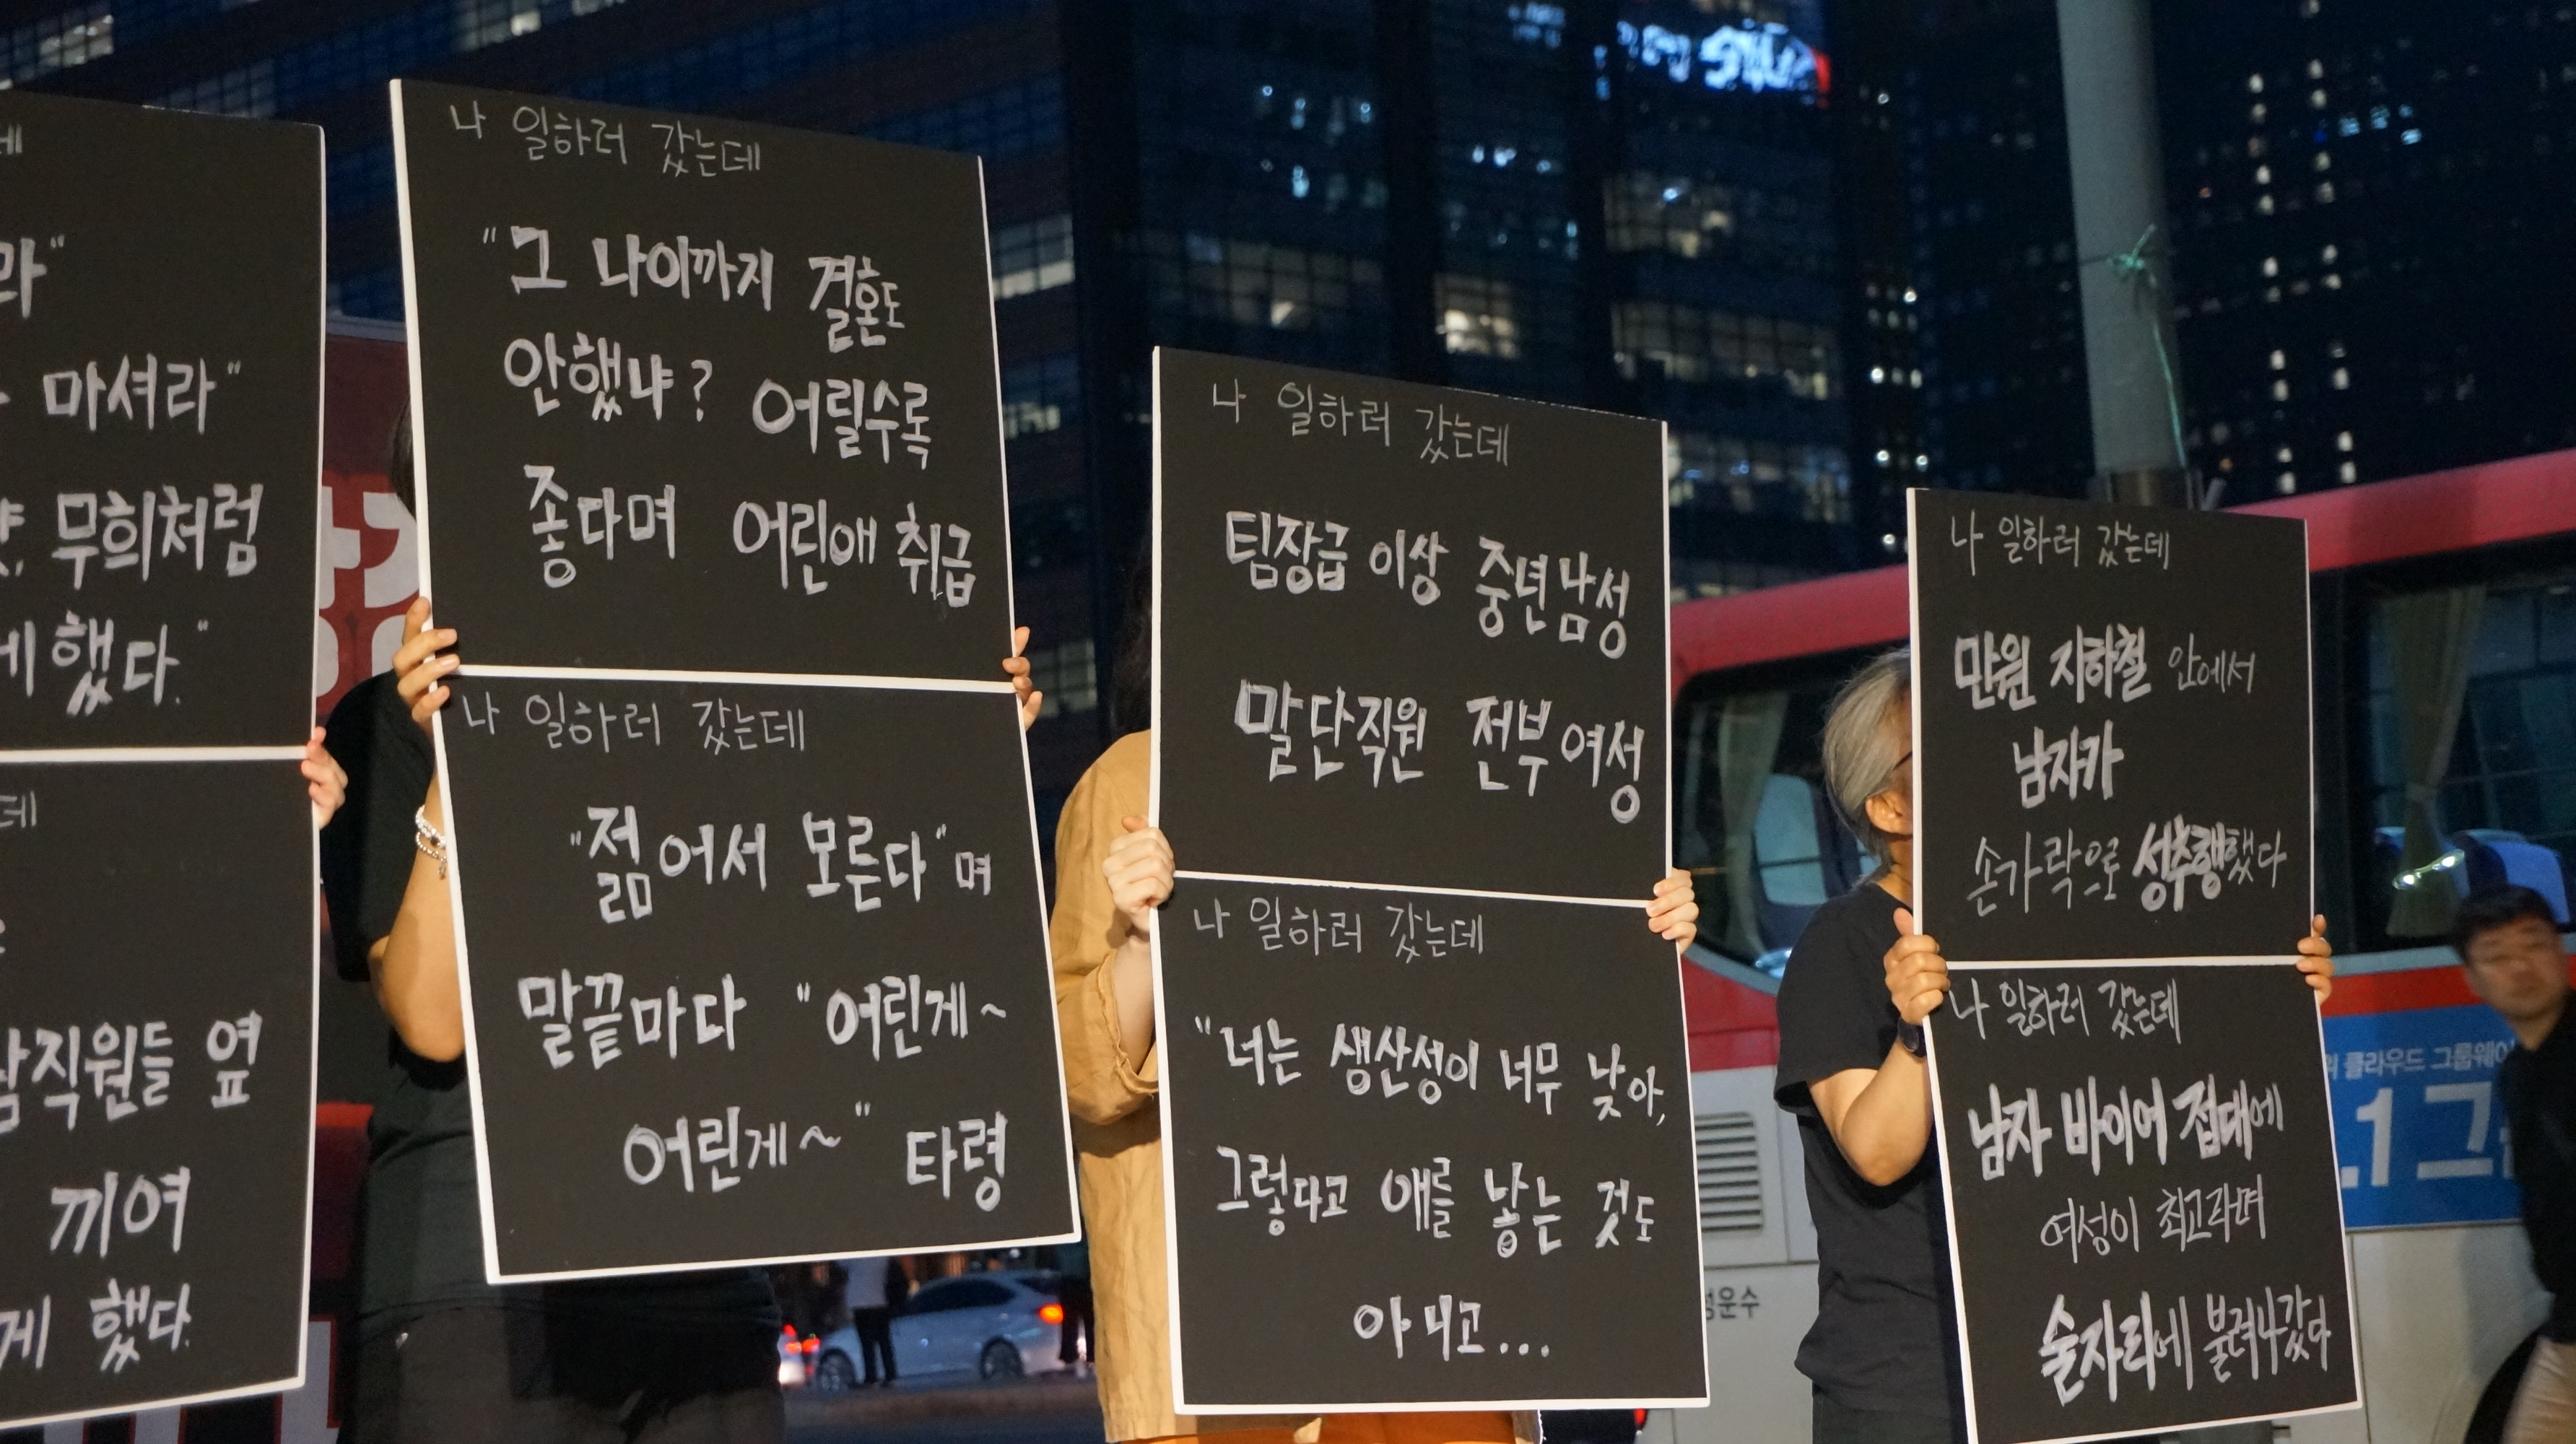 마셔라"
무희처럼
했다."
직원들 옆
끼여
게 했다.
나 일하러 갔는데
"그 나이까지 결혼도
안했냐? 어릴수록
좋다며 어린애 취급
나 일하러 갔는데
"젊어서 모른다"며
말끝마다 "어린게~
어린게~" 타령
나 일하러 갔는데
팀장급 이상 중년남성
말단직원 전부여성
나 일하러 갔는데
"너는 생산성이 너무 낮아,
그렇다고 애를 낳는 것도
아니고...
나 일하러 갔는데
만원 지하철 안에서
남자가
손가락으로 성추행했다
나 일하러 갔는데
남자 바이어 접대에
여성이 최고라며
술자리에 불려나갔다
클라우드 그룹웨어
.1 그
운수